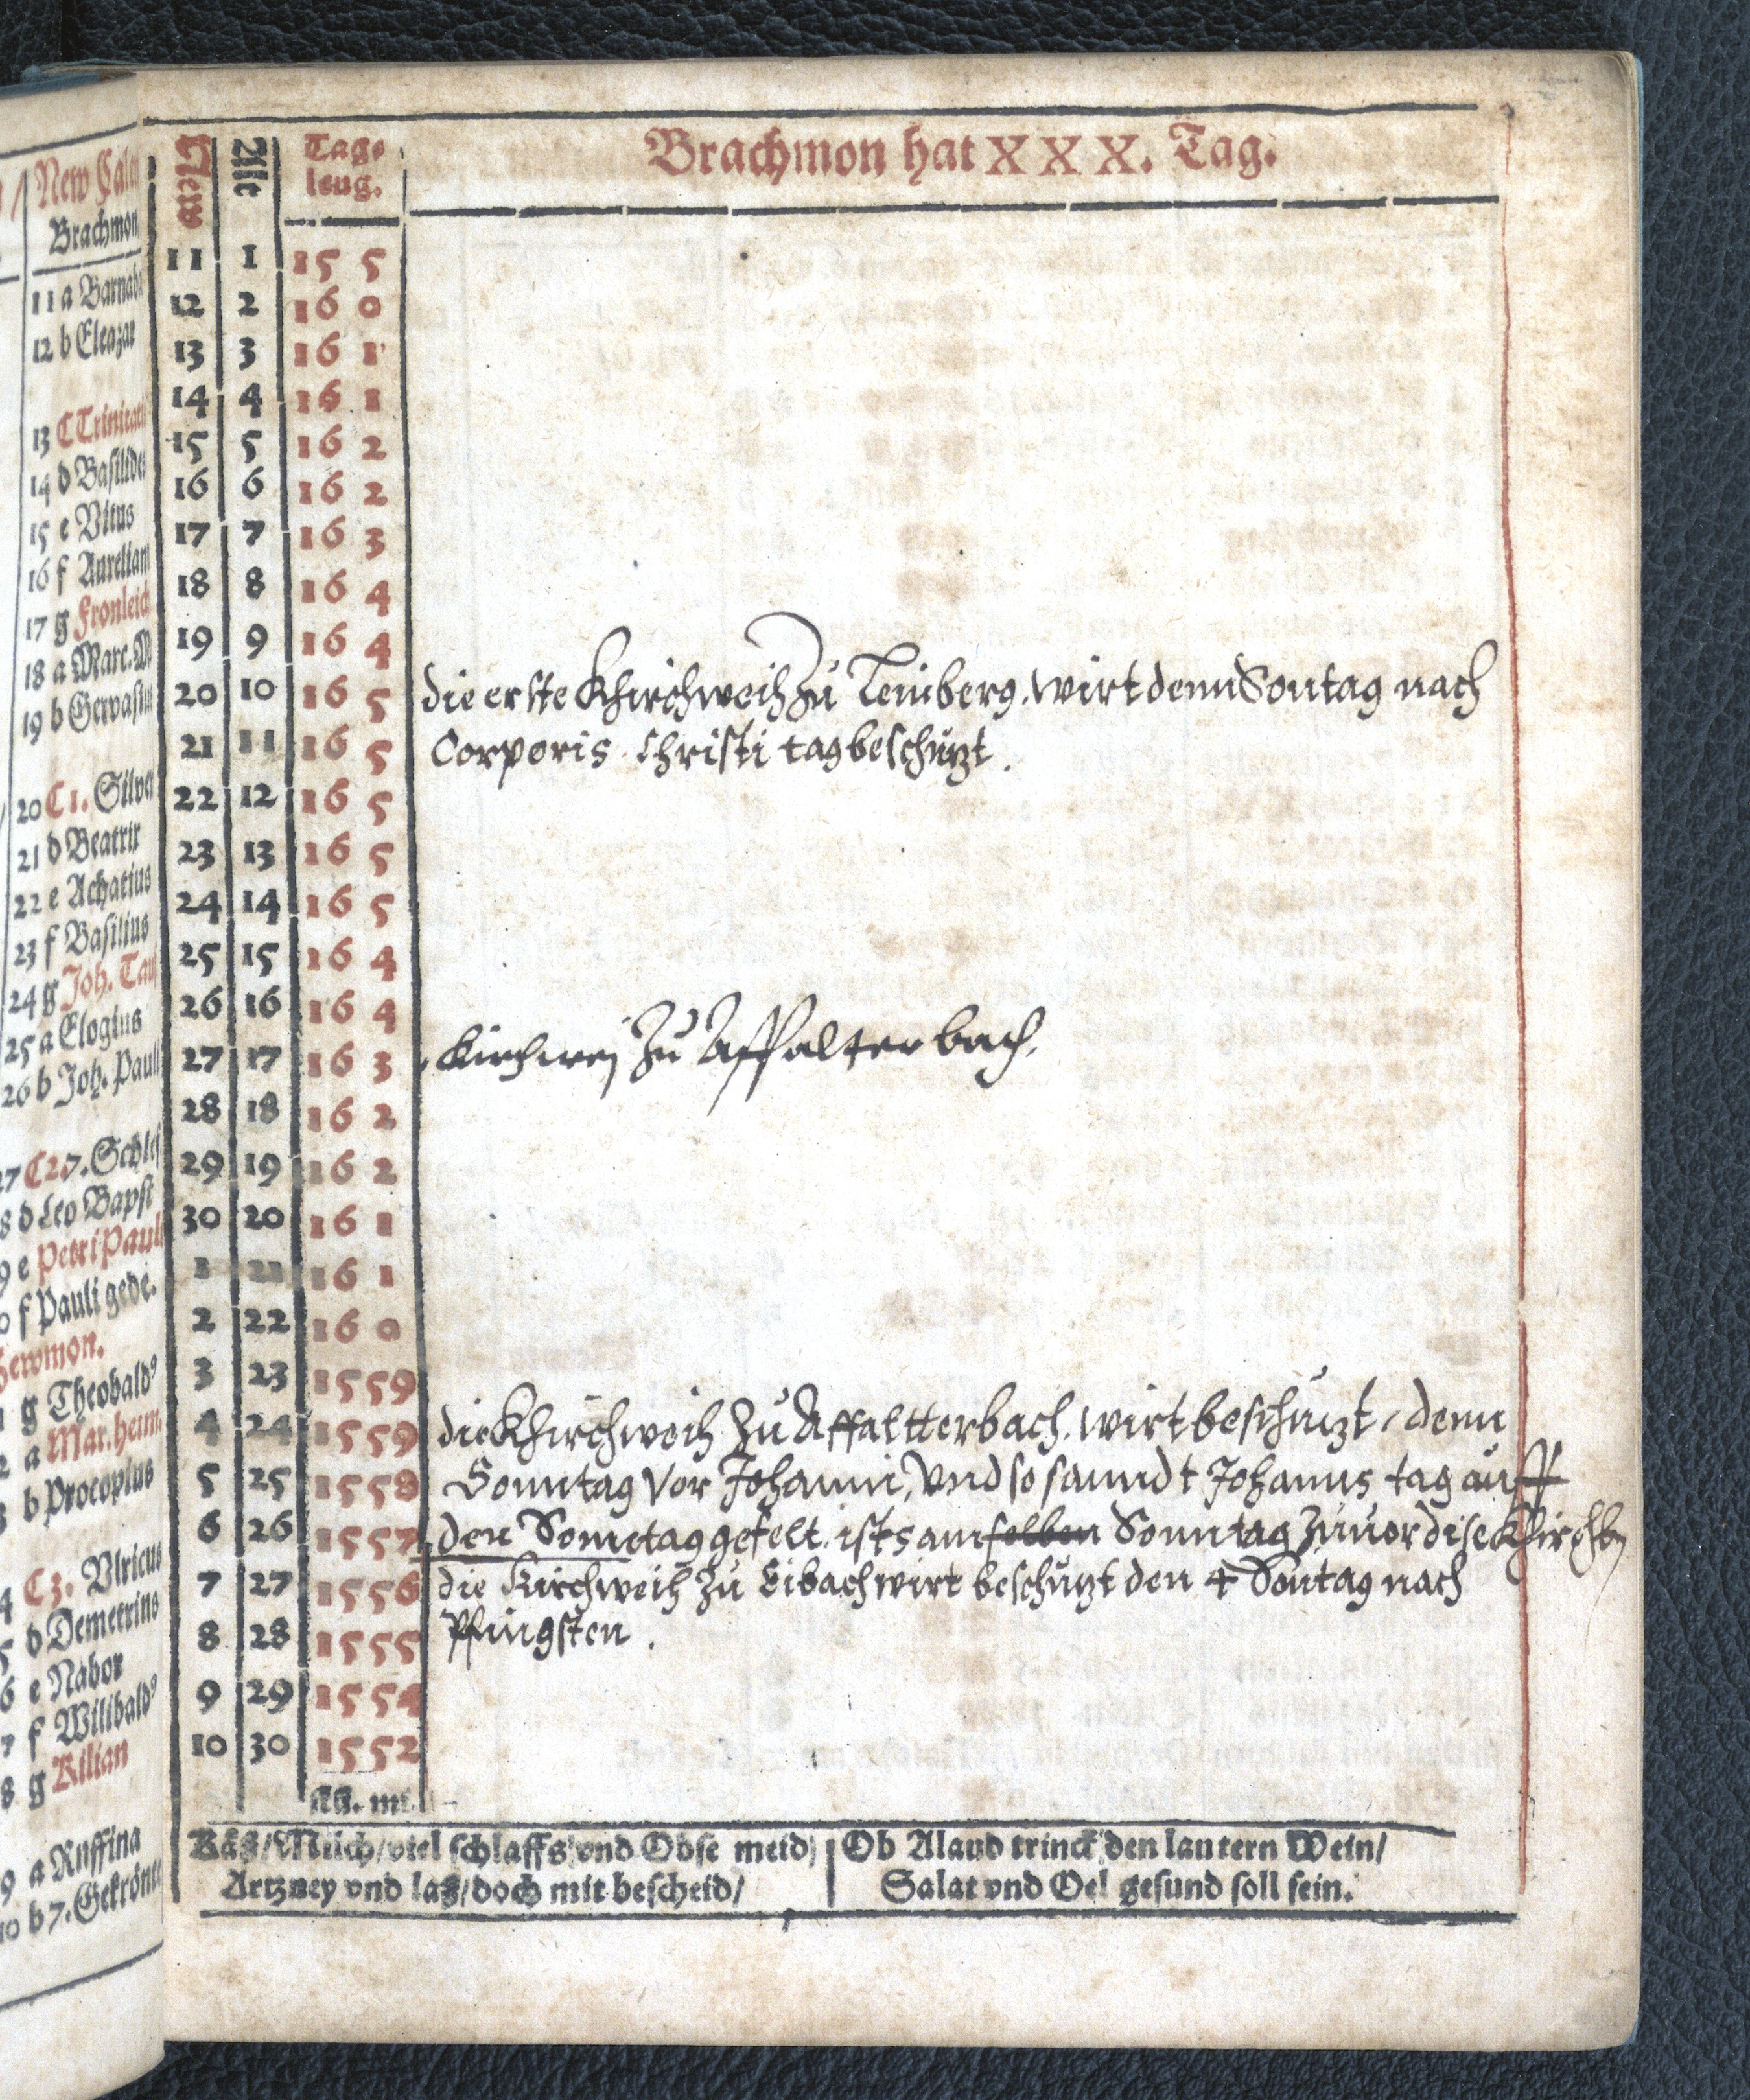 New Calen
Brachmon
11 a Barnab
12 b Eleazar
13 C Trinitati
14 d Basilides
15 e Vitus
16 f Aurelian
17 g Fronleich
18 a Marc. M
19 b Gervasius
20 C 1. Silver
21 d Beatrix
22 e Achatius
23 f Basilius
24 g Joh. Tau
25 a Elogius
26 b Joh. Pauli
27 C 2. 7. Schlef
8 d Leo Bapst
9 e Petri Pauli
0 f Pauli gede.
Hewmon.
1 g Theobald⁹
2 a Mar. heim
3 b Procopius
4 C 3. Vlricus
5 d Demetrius
6 e Nabor
7 f Wilibald⁹
8 g Kilian
9 a Ruffina
10 b 7. Gekrönte
New Alt Tag⸗ Brachmon hat X X X. Tag.
leng.
11 1 15 5
12 2 16 0
13 3 16 1
14 4 16 1
15 5 16 2
16 6 16 2
17 7 16 3
18 8 16 4
19 9 16 4
20 10 16 5 die erste Khirchweih zu wirt denn Sontag nach
21 11 16 5 Corporis Christi tag beschutzt.
22 12 16 5
23 13 16 5
24 14 16 5
25 15 16 4
26 16 16 4
27 17 16 3 Kirchwej zu Affalterbach.
28 18 16 2
29 19 16 2
30 20 16 1
1 21 16 1
2 22 16 0
3 23 15 59
4 24 15 59 die Khirchweih zu Affaltterbach. wirt beschutzt, denn
5 25 15 58 Sonntag vor Johanni, vnd so sanndt Johanns tag auff
6 26 15 57 den Sonntag gefelt. ists am selben Sonntag zuuor dise
7 27 15 56 die Kirchweih zu Eibach wirt beschutzt den 4 Sontag nach
8 28 15 55 Pfingsten.
9 29 15 54
10 30 15 52
Käß/Milch/viel schlaffs vnd Obse meid/ Ob Aland trinck den lautern Wein/
Artzney vnd laß/doch mit bescheid/ Salat vnd Oel gesund soll sein.